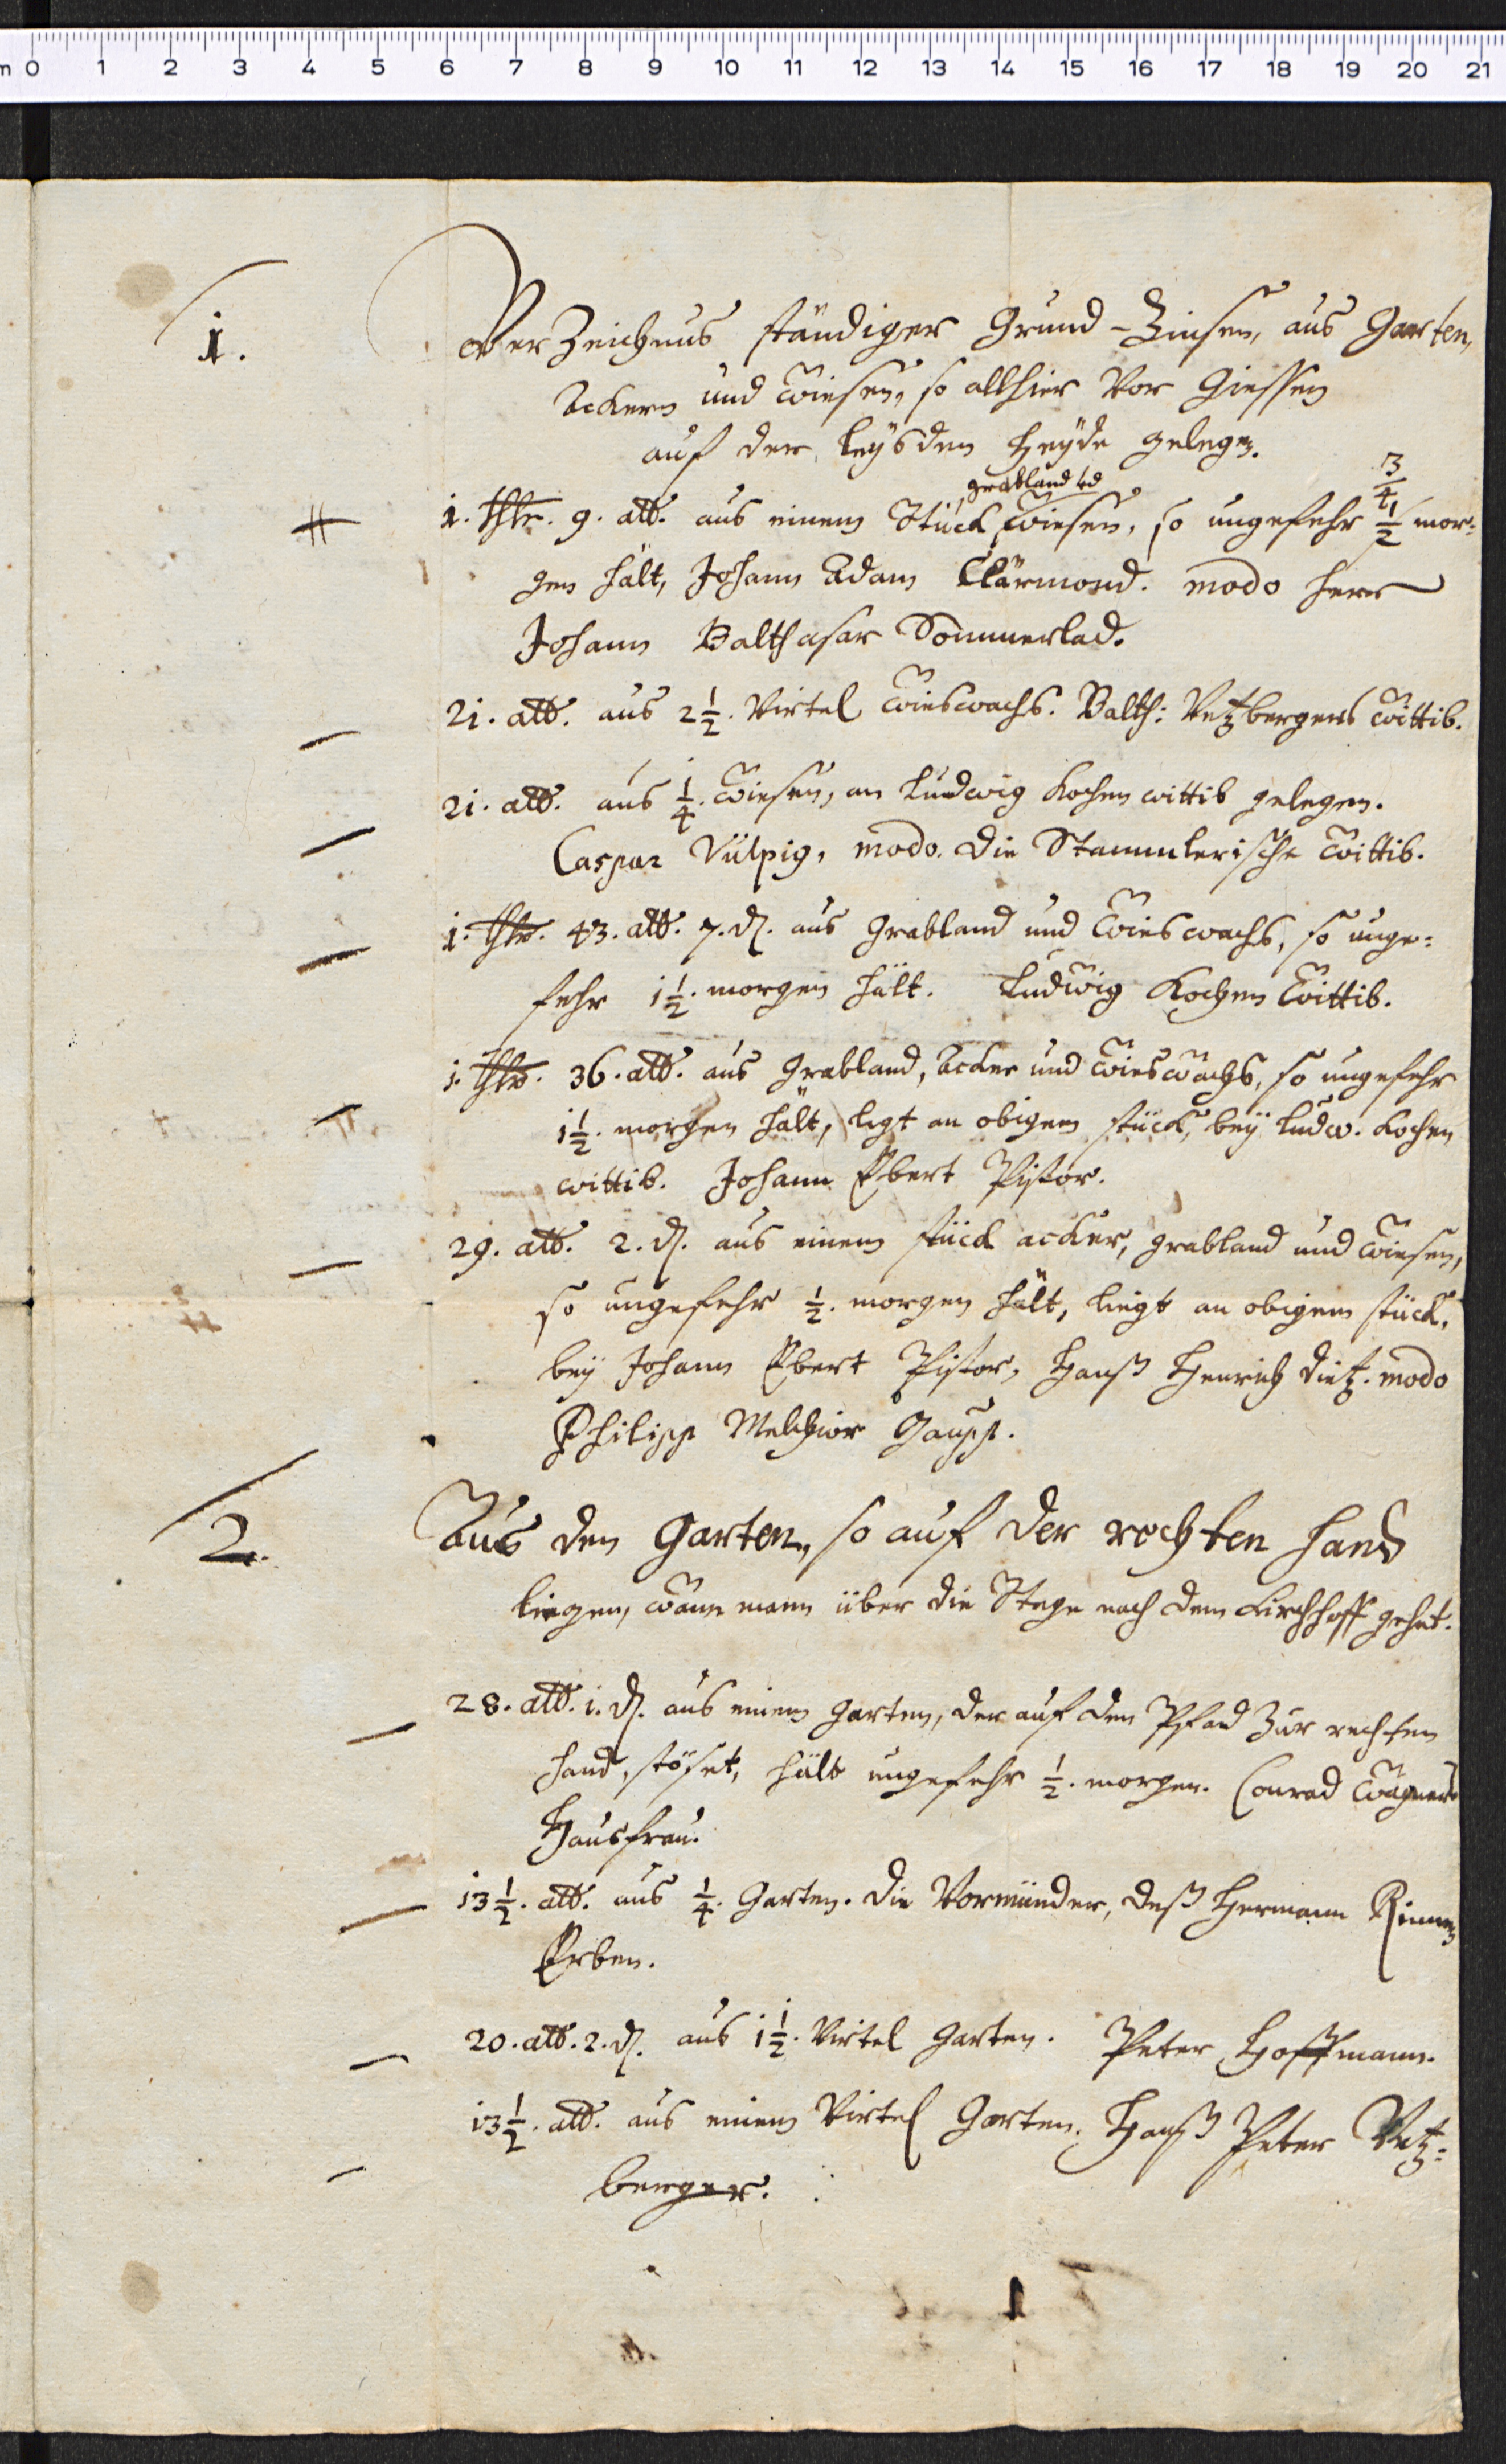 1.
Verzeichnus ständiger Grund-Zinsen, aus Garten,
Ackern und Wiesen, so allhier Vor Giessen
auf der Heyde gelegen.
grabland ud
3/4
1. thlr. 9. alb. aus einem Stück Wiesen, so ungefehr 1/2 mor-
gen hält, Johann Adam Clärmond. modo herr
Johann Balthasar Sommerlad.
21. alb. aus 2 1/2. Virtel Wieswachs. Balth: Vetzbergers Wittib.
21. alb. aus 1/4. Wiesen, an Ludwig Kochen wittib gelegen.
Caspar Vülpig, modo. die Stammlerische Wittib.
1. thlr. 43. alb. 7. d. aus Grabland und Wieswachs, so unge-
fehr 1 1/2. morgen hält. Ludwig Kochen Wittib.
1. thlr. 36. alb. aus Grabland, Acker und Wieswachs, so ungefehr
1 1/2. morgen hält, ligt an obigem stück, bey Ludw. Kochen
wittib. Johann Ebert Pistor.
29. alb. 2. d. aus einem stück acker, grabland und Wiesen,
so ungefehr 1/2. morgen hält, liegt an obigem stück,
bey Johann Ebert Pistor, Hanß Henrich Dietz. modo
Philipp Melchior Gaupp.
2.
Aus den Garten, so auf der rechten Hand
liegen, wann mann über die Stege nach dem Kirchhoff gehet.
28. alb. 1. d. aus einem Garten, der auf den Pfad zur rechten
Hand, stöset, hält ungefehr 1/2. morgen. Conrad Wagners
Hausfrau.
13 1/2. alb. aus 1/4. Garten. die Vormünder, deß Hermann Rinnen
Erben.
20. alb. 2. d. aus 1 1/2. Virtel Garten. Peter Hoffmann.
13 1/2. alb. aus einem Virtel Garten. Hanß Peter Vetz-
berger.